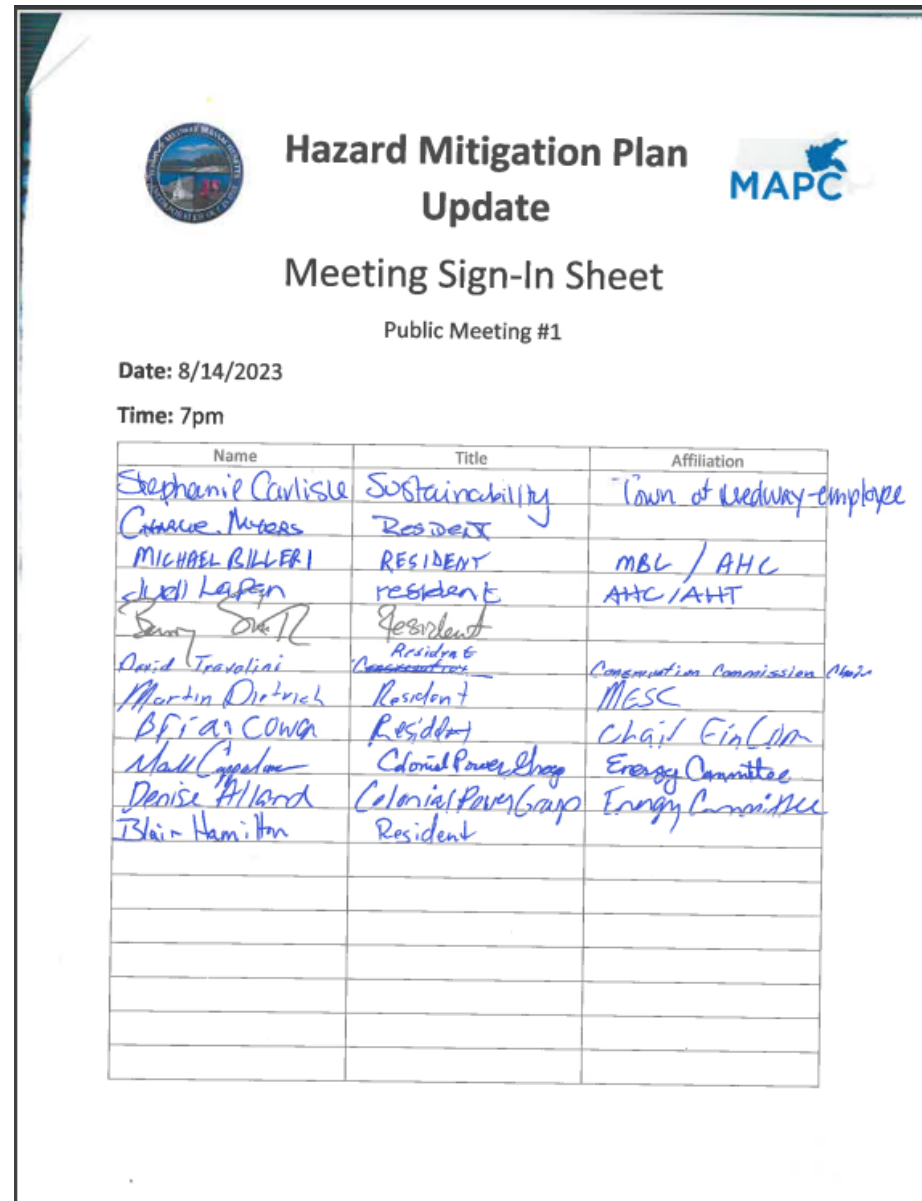 Hazard Mitigation Plan
Update
MAPC
Meeting Sign-In Sheet
Public Meeting #1
Date: 8/14/2023
Time: 7pm
Name Title Affiliation
Stephanie Carlisle Sustainability Town of Medway-employee
CHARLIE MYERS RESIDENT
MICHAEL BILLERI RESIDENT MBC / AHC
Lapan resident AHC/AHT
Resident
Resident
David Travalini Conservation Conservation Commission Chair
Martin Dietrich Resident MESC
Brian Cowan Resident Chair FinCom
Mark Colonial Power Group Energy Committee
Denise Allard Colonial Power Group Energy Committee
Blair Hamilton Resident